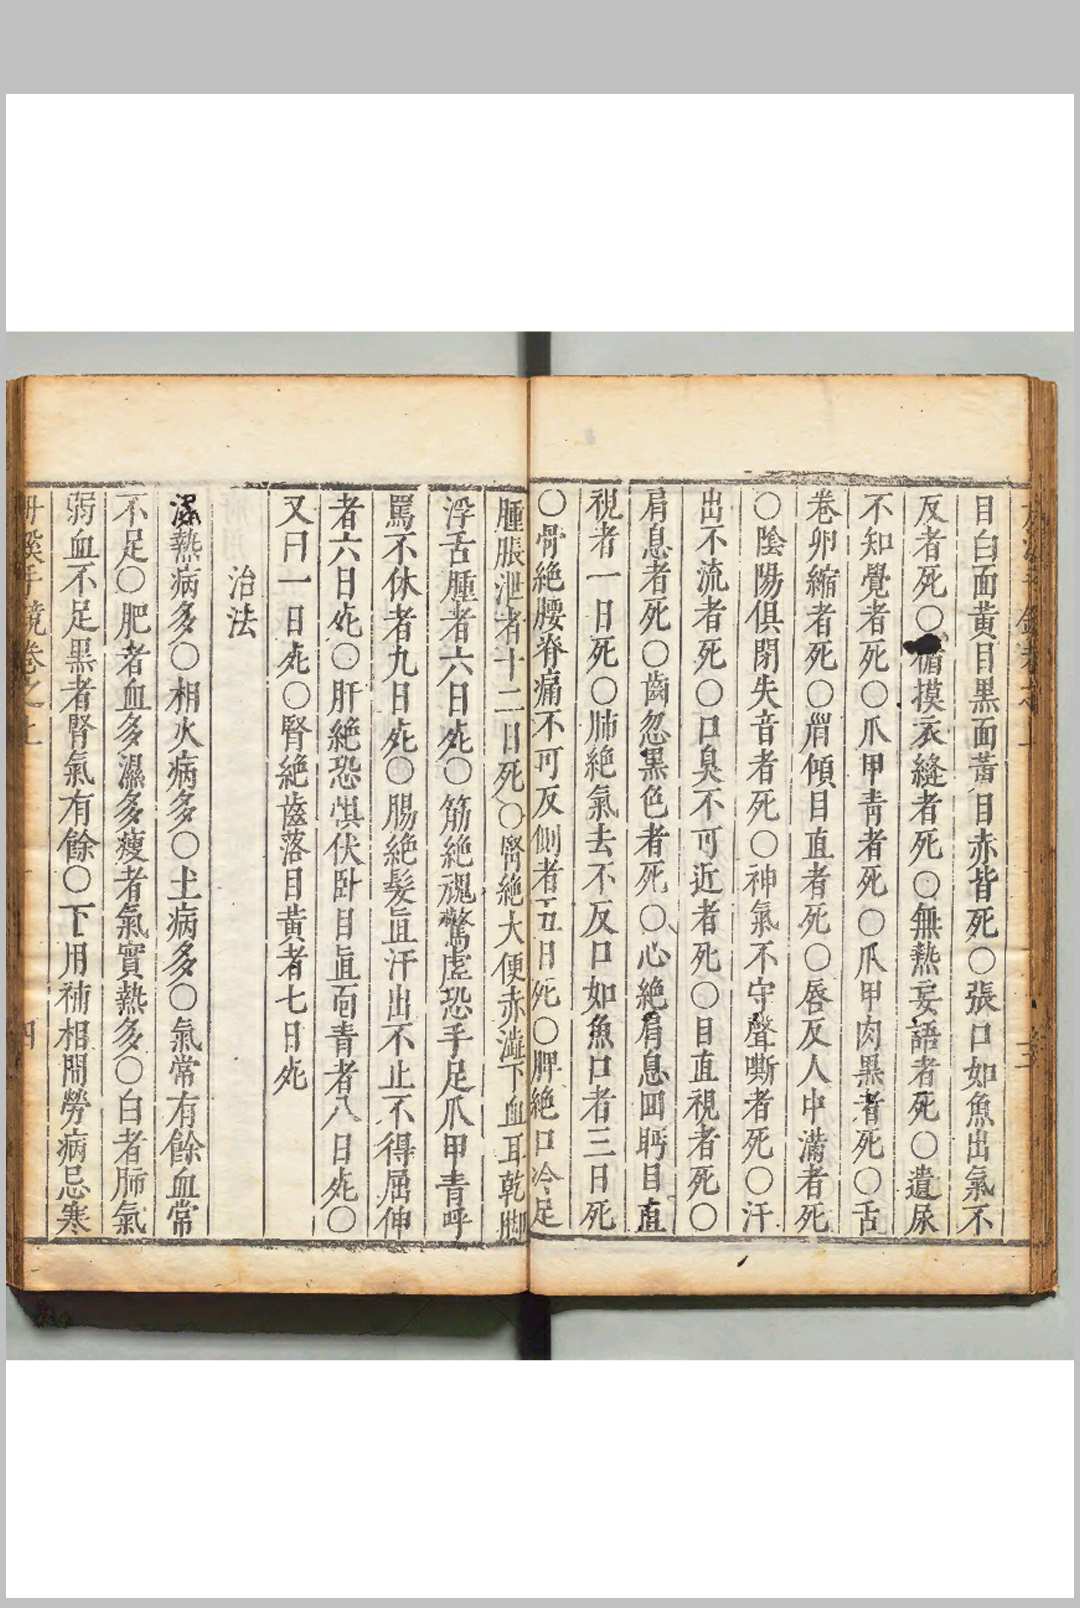 目白面黃目黑面黃目赤皆死〇張口如魚出氣不
反者死〇循摸衣縫者死〇無熱妄語者死〇遺尿
不知覺者死〇爪甲靑者死〇爪甲肉黑者死〇舌
卷卵縮者死〇眉傾目直者死〇唇反人中滿者死
〇陰陽俱閉失音者死〇神氣不守聲嘶者死〇汗
出不流者死〇口臭不可近者死〇目直視者死〇
肩息者死〇齒忽黑色者死〇心絶肩息回眄目直
視者一日死〇肺絶氣去不反口如魚口者三日死
〇骨絶腰脊痛不可反側者五日死〇脾絶口冷足
腫脹泄者十二日死〇腎絶大便赤澁下血耳乾脚
浮舌腫者六日死〇筋絶魂驚虛恐手足爪甲青呼
罵不休者九日死〇腸絶髮直汗出不止不得屈伸
者六日死〇肝絶恐惧伏卧目直面青者八日死〇
又曰一日死〇腎絶齒落目黃者七日死
治法
濕熱病多〇相火病多〇土病多〇氣常有餘血常
不足〇肥者血多濕多瘦者氣實熱多〇白者肺氣
弱血不足黑者腎氣有餘〇下用補相間勞病忌寒
手鏡卷之上
四